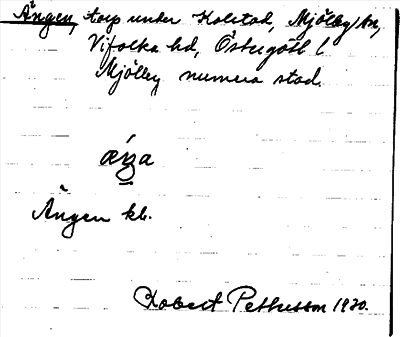 Ängen, torp under Kolstad, Mjölby sn,
Vifolka hd, Östergötl l
Mjölby numera stad.
æŋa
Ängen kb.
Robert Pettersson 1930.